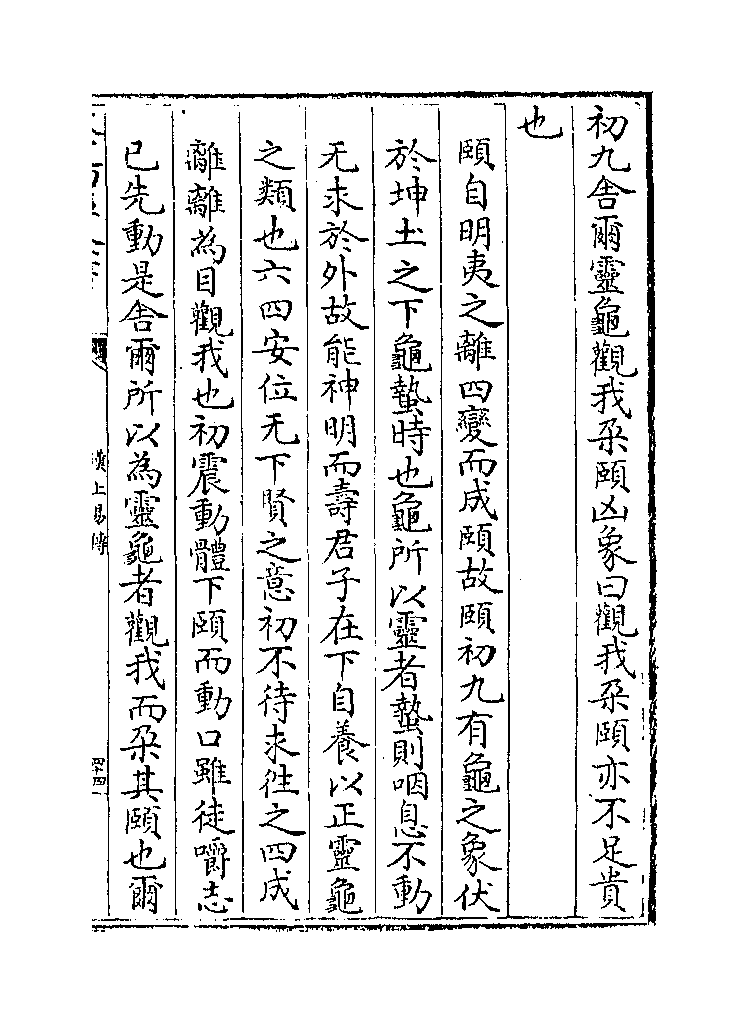 初九舍爾靈龜觀我朶頤凶象曰觀我朶頤亦不足貴
也
頤自明夷之離四變而成頤故頤初九有龜之象伏
於坤土之下龜蟄時也龜所以靈者蟄則咽息不動
无求於外故能神明而壽君子在下自養以正靈龜
之類也六四安位无下賢之意初不待求徃之四成
離離為目觀我也初震動體下頤而動口雖徒嚼志
已先動是舍爾所以為靈龜者觀我而朶其頤也爾
漢上易傳
四十四